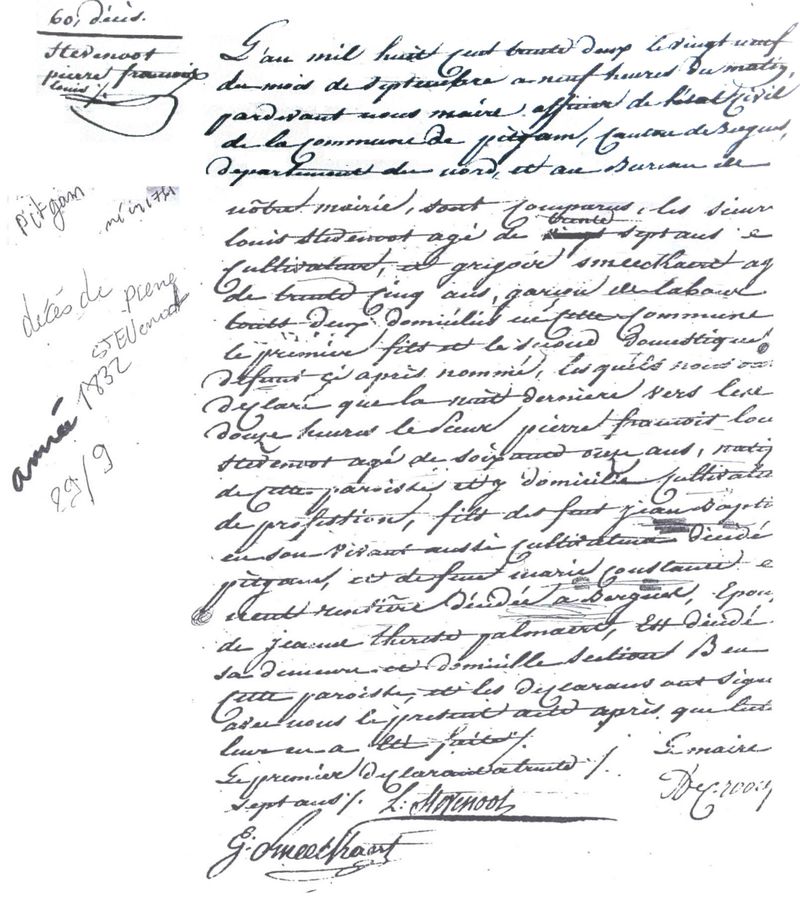 60, décès.
Stevenoot
pierre francois
louis /.
L'an mil huit cent trente deux le vingt neuf
du mois de septembre a neuf heures du matin,
pardevant nous maire officier de l'état Civil
de la commune de pitgam, Canton de Bergues,
departement du nord, et au Bureau de
nôtre mairie, sont comparus, les sieur
louis Stevenoot agé de trente sept ans e
cultivateur, et grigoir Smeeckaert ag
de trente cinq ans, garçon de labour
touts deux domiciliés en cette commune
le premier fils et le second domestique
defunt çi après nommé, lesquels nous
declaré que la nuit derniere vers les
douze heures le Sieur pierre francois lou
Stevenoot agé de soixante onze ans, natif
de cette paroisse et y domicilié Cultivate
de profession, fils des feus jean Bapti
en son vivant aussi cultivateur décédé
pitgam, et de feue marie constance e
rentière décédée a Bergues, Epou
de jeanne therese palmaert, Est décédé
sa demeure et domicille section B en
cette paroisse, et les declarans ont signé
avec nous le présent acte après que lect
leur en a été faite /.
Le premier declarant a trente /.
sept ans /.
Le maire
L. Stevenoot
G. Smeeckaert
pitgam
décès de pierre
STEVenoot
année 1832
29/9